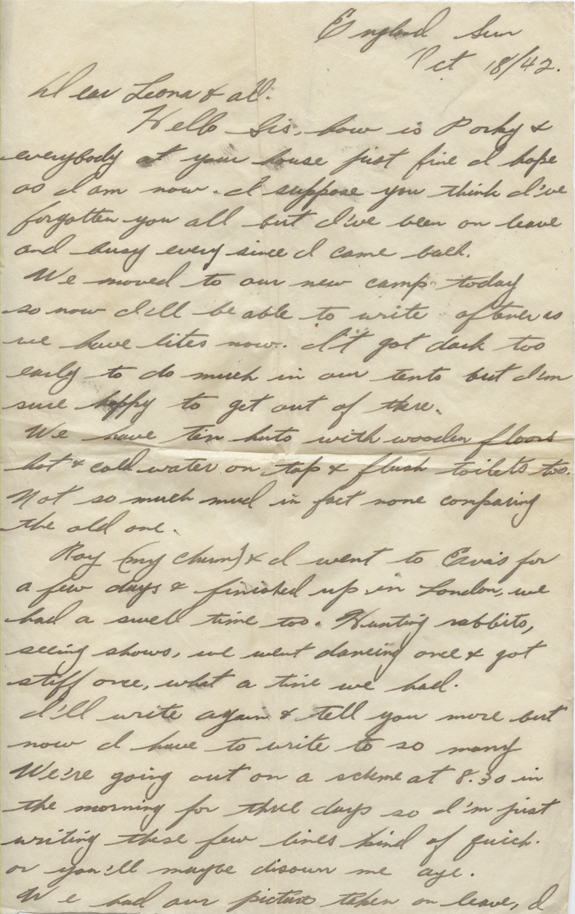 England Sun
Oct 18/42.
Dear Leona & all.
Hello Sis, how is Porky &
everybody at your house just fine I hope
as I am now. I suppose you think I've
forgotten you all but I've been on leave
and busy every since I came back.
We moved to our new camp today
so now I'll be able to write oftener as
we have lites now. It got dark too
early to do much in our tents but I'm
sure happy to get out of there.
We have tin huts with wooden floors
hot & cold water on tap & flush toilets too.
Not so much mud in fact none comparing
the old one.
Roy (my chum) & I went to Eva's for
a few days & finished up in London, we
had a swell time too. Hunting rabbits,
seeing shows, we went dancing once & got
stiff once, what a time we had.
I'll write again & tell you more but
now I have to write to so many
We're going out on a scheme at 8.30 in
the morning for three days so I'm just
writing these few lines kind of quick.
or you'll maybe disown me aye.
We had our picture taken on leave, I